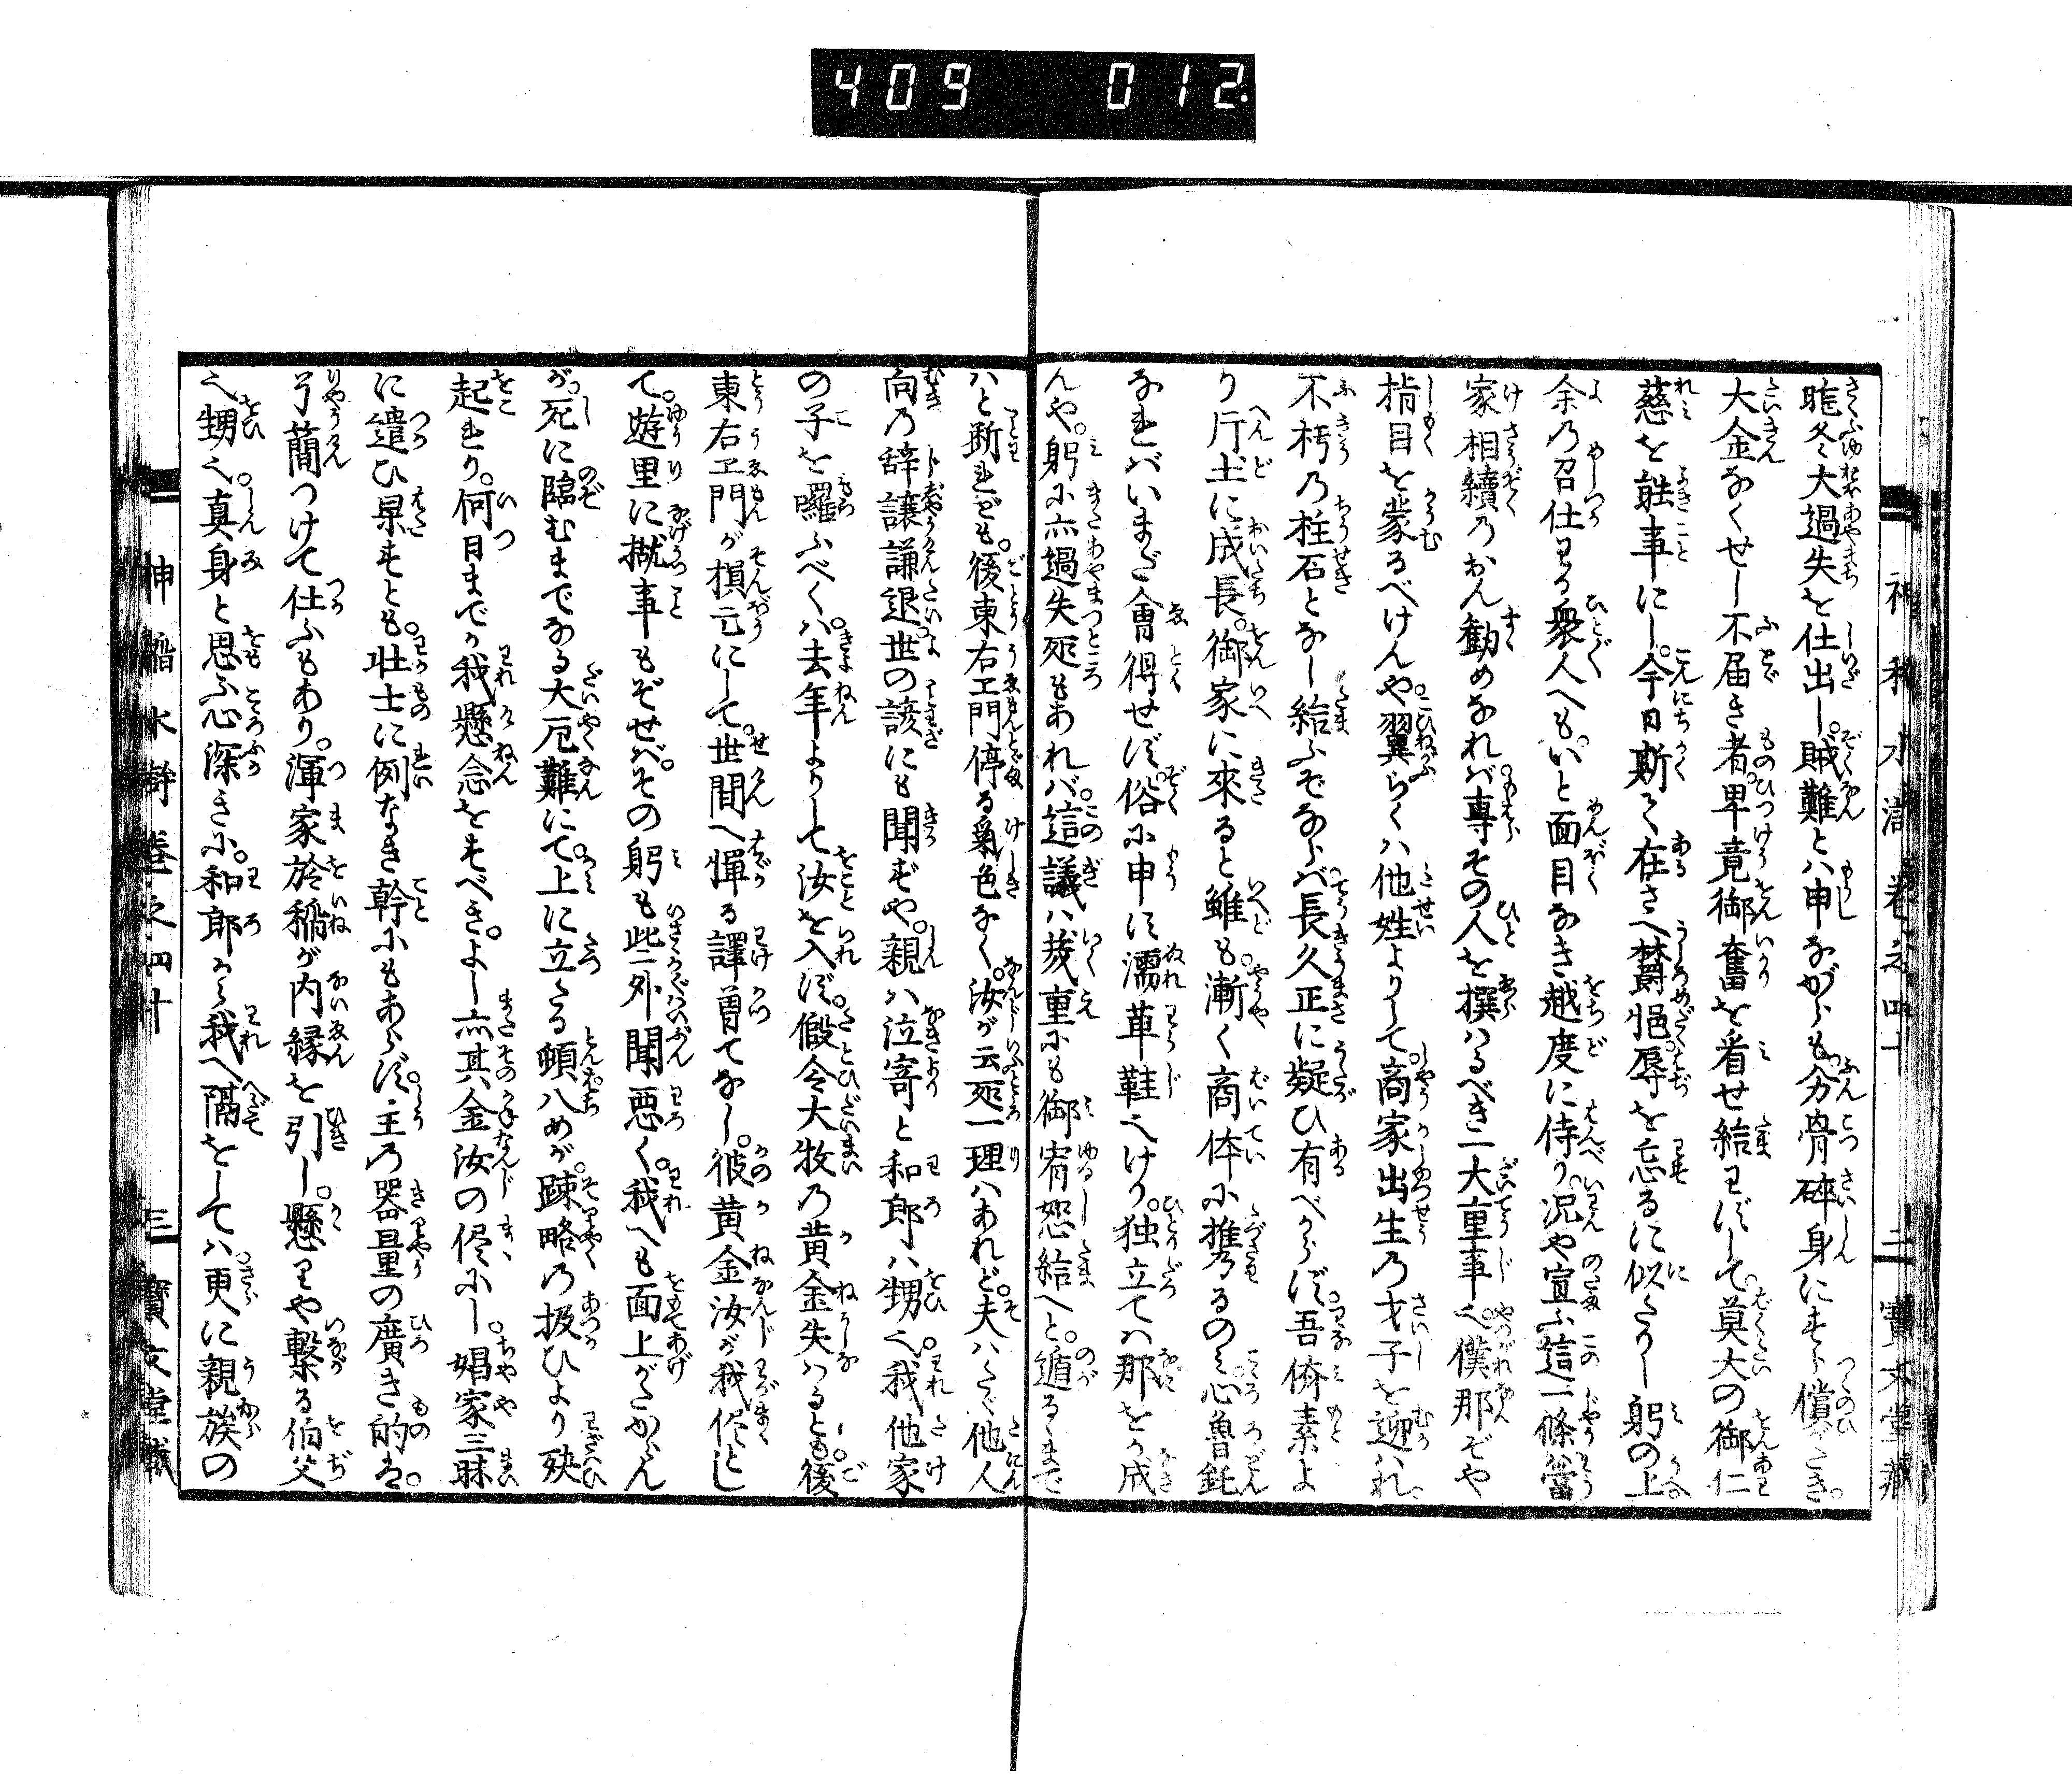 409 012
神稲水滸卷之四十 三 寶文堂藏
昨冬大過失を仕出し。賊難とハ申ながらも。分骨碎身にすら償がたき。
大金なくせし不届き者。畢竟御奮を看せ給ハずして。莫大の御仁
慈を能事にし。今日斯て在さへ欝悒。辱を忘るに似たりし躬の上。
余の召仕はる衆人へも。いと面目なき越度に侍り。況や宣ふ這一條。當
家相續のおん勧めなれバ。専その人を撰ハるべき一大重事也。僕那ぞや
指目を蒙るべけんや。翼らくハ他姓よりして。商家出生の才子を迎ハれ。
不朽の柱石となし給ふぞならバ。長久正に疑ひ有べからず。吾儕素よ
り片土に成長。御家に來ると雖も。漸く商体に携るのミ。心魯鈍
なれバいまだ會得せず。俗に申す濡革鞋也けり。独立てハ那をか成
んや。躬に亦過失处もあれバ。這議ハ幾重にも御宥恕給へと。遁るまで
ハと断れども。後東右エ門停る氣色なく。汝が云処一理ハあれど。夫ハたゞ他人
向の辞讓謙退。世の諺にも聞ずや。親ハ泣寄と和郎ハ甥也。我他家
の子を囉ふべくハ。去年よりして汝を入ず。假令大枚の黄金失ハるとも。後
東右エ門が損亡にして。世間へ憚る譯曽てなし。彼黄金汝が我侭とし
て。遊里に擲事もぞせバ。その躬も些外聞悪く。我へも面上がたからん
が。死に臨むまでなる大厄難にて。上に立たる頓八めが。踈略の扱ひより殃
起れり。何目までか我懸念をすべき。よし亦其金汝の侭にし。娼家三昧
に遣ひ果すとも。壮士に例なき幹にもあらず。主の器量の廣き的は。
了簡つけて仕ふもあり。渾家於稲が内縁を引し。懸はや繋る伯父
也甥也。真身と思ふ心深きに。和郎から我へ隔をしてハ。更に親族の
神稲水滸卷之四十 三 寶文堂藏